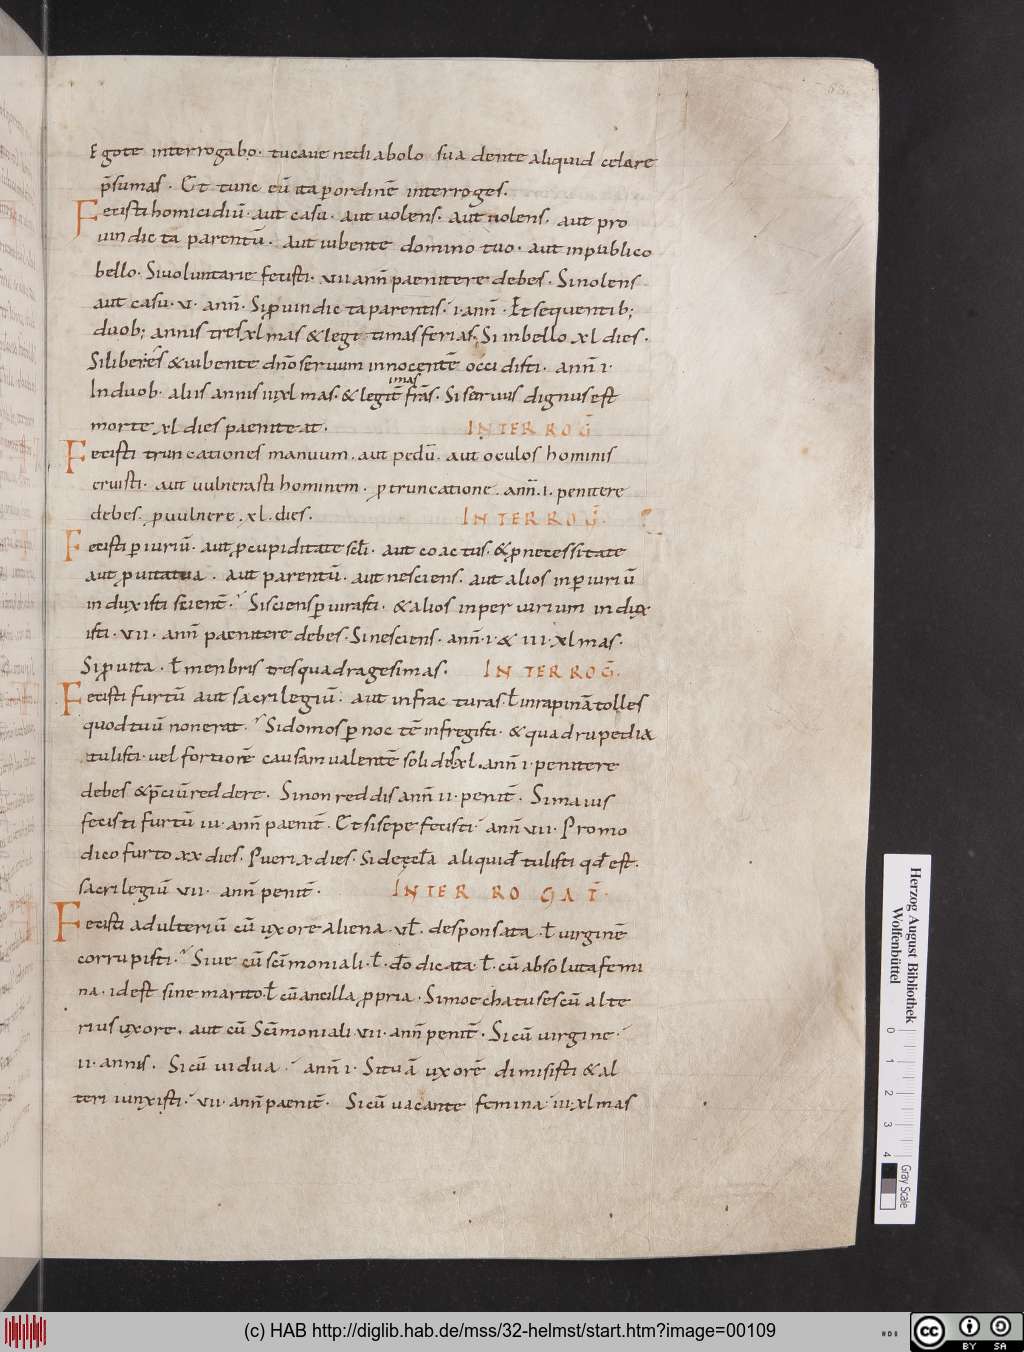 Egote interrogabo · tu caue ne diabolo sua dente aliquid celare
p̄sumas · Et tunc cū ita p ordinē interroges.
Fecisti homicidiū · aut casu · aut uolens · aut nolens · aut pro
uindicta parentū · aut iubente domino tuo · aut in publico
bello · Si uoluntarie fecisti · vii ann̄ paenitere debes · Si nolens
aut casu · v · ann̄ · Si p uindicta parentis · i · ann̄ · Et sequentib;
duob; annis tres xlmas & legitimas ferias · Si in bello xl dies ·
Si liber es & iubente dn̄o seruum innocentē occidisti · ann̄ i ·
In duob · aliis annis iii xlmas · & legitē imas frās · Si seruus dignus est
morte xl dies paeniteat · INTERROḠ
Fecisti truncationes manuum · aut pedū · aut oculos hominis
eruisti · aut uulnerasti hominem · p truncatione · ann̄ · i · penitere
debes · p uulnere · xl · dies · INTERROḠ ·
Fecisti periuriū · aut p cupiditate scl̄i · aut coactus · & p necessitate
aut p uita tua · aut parentū · aut nesciens · aut alios in piuriū
induxisti scientē · Si sciens piurasti · & alios in periurium indux
isti · vii · ann̄ paenitere debes · Si nesciens · ann̄ · i · & iii · xlmas ·
Si p uita · ł menbris tres quadragesimas · INTERROḠ ·
Fecisti furtū aut sacrilegiū · aut infracturas · ł in rapinā tolles
quod tuū non erat · Si domos p noctē infregisti · & quadrupedia
tulisti · uel fortiorē causam ualentē solidos xl · ann̄ i · penitere
debes & p̄ciū reddere · Si non reddis ann̄ ii · penit̄ · Si maius
fecisti furtū iii · ann̄ paenit̄ · Et si sepe fecisti · ann̄ vii · Pro mo
dico furto xx dies · Pueri x dies · Si de ęcl̄a aliquid tulisti qd̄ est ·
sacrilegiū vii · ann̄ penit̄ · INTERROGAT̄ ·
Fecisti adulteriū cū uxore aliena · ul̄ · desponsata · ł uirginē
corrupisti · Siue cū sc̄imoniali · ł · dō dicata · ł · cū absoluta femi
na · id est sine marito · ł cū ancilla ppria · Si moechatus es cū alte
rius uxore · aut cū sc̄imoniali vii · ann̄ penit̄ · Si cū uirgine ·
ii · annis · Si cū uidua · ann̄ i · Si tuā uxorē dimisisti & al
teri iunxisti · vii · ann̄ paenit̄ · Si cū uacante femina · iii xlmas
Herzog August Bibliothek
Wolfenbüttel
0 1 2 3 4
Gray Scale
(c) HAB http://diglib.hab.de/mss/32-helmst/start.htm?image=00109
cc BY SA